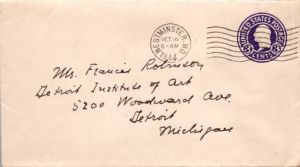 WESTMINSTER, MD.
OCT 16
6-AM
1944
UNITED STATES POSTAGE
3 CENTS 3
Mr. Francis Robinson
Detroit Institute of Art
5200 Woodward Ave.
Detroit
Michigan